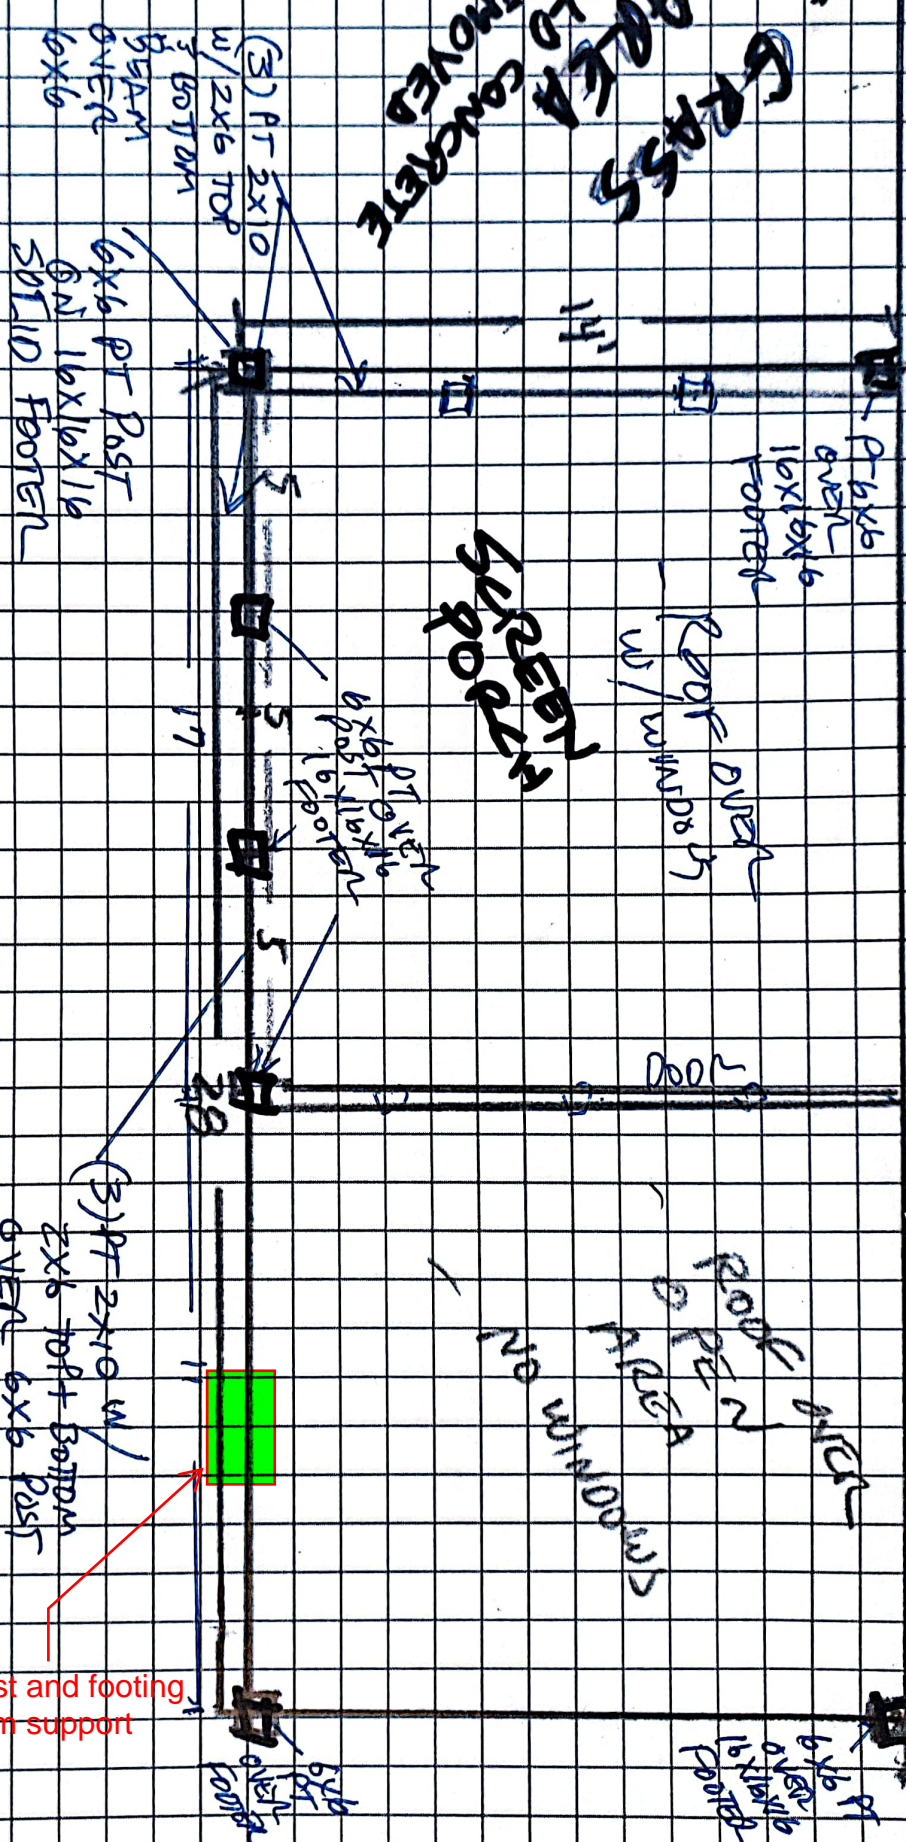 GRASS
AREA
CONCRETE
(3) PT 2X10
W/ 2X6 TOP
& BOTTOM
BEAM
OVER
6X6
6X6 PT POST
ON 16X16X16
SOLID FOOTER
14'
PT 6X6
OVER
16X16X16
FOOTER
SCREEN
PORCH
- ROOF OVER
W/ WINDOWS
5
5
5
17
6X6 PT
POST OVER
16X16X16
FOOTER
28
DOOR
(3) PT 2X10 W/
2X6 TOP + BOTTOM
OVER 6X6 POST
- ROOF OVER
OPEN
AREA
- NO WINDOWS
11
st and footing
m support
6X6
PT
OVER
FOOTER
6X6 PT
OVER
16X16X16
FOOTER